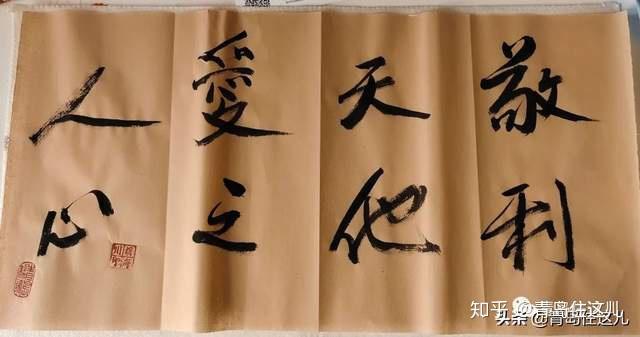 敬天愛人
利他之心
知乎 @青岛住这儿
头条 @青岛住这儿